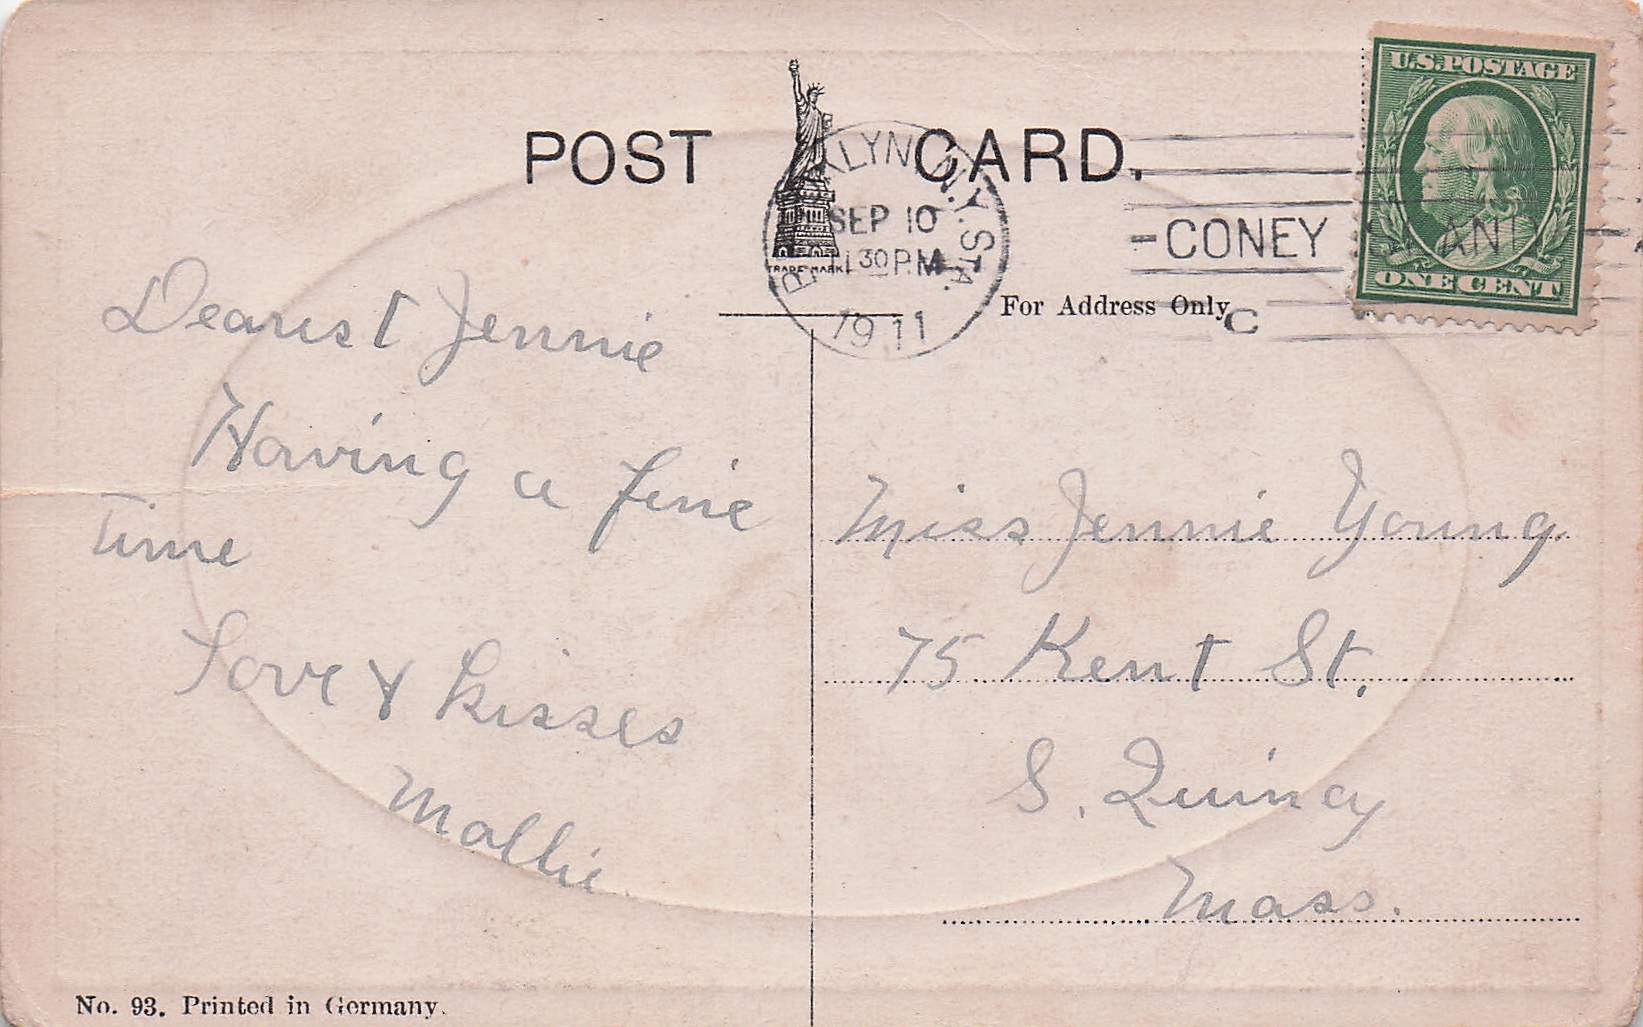 POST CARD.
TRADE MARK
BROOKLYN, N.Y. STA.
SEP 10
11 30 P.M.
1911
C
CONEY ISLAND
U.S. POSTAGE
ONE CENT
For Address Only
Dearest Jennie
Having a fine
Time
Love & Kisses
Mollie.
Miss Jennie Young.
75 Kent St.
S. Quincy
Mass.
No. 93. Printed in Germany.